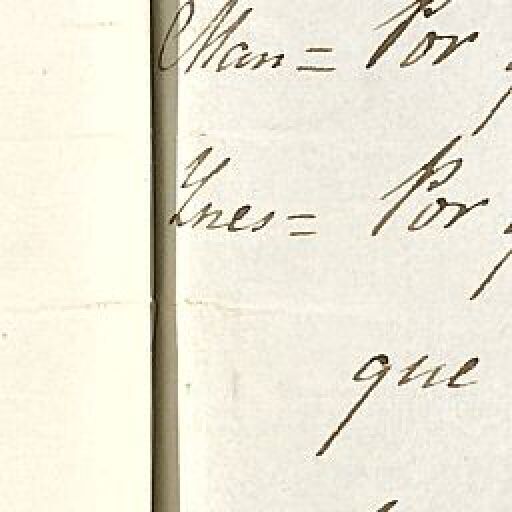 Man= Por
Ynes= Por
que